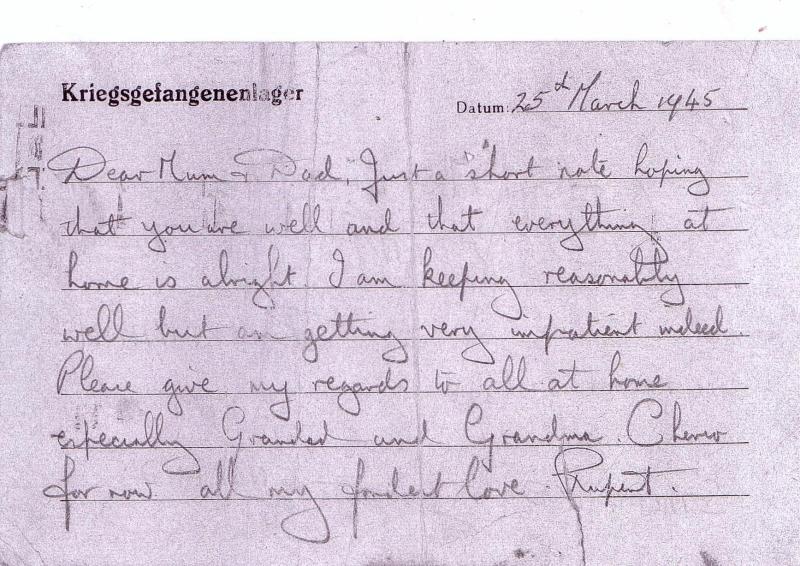 Kriegsgefangenenlager
Datum: 25th March 1945
Dear Mum & Dad, Just a short note hoping
that you are well and that everything at
home is alright. I am keeping reasonably
well but am getting very impatient indeed.
Please give my regards to all at home
especially Grandad and Grandma. Cheerio
for now all my fondest love. Rupert.